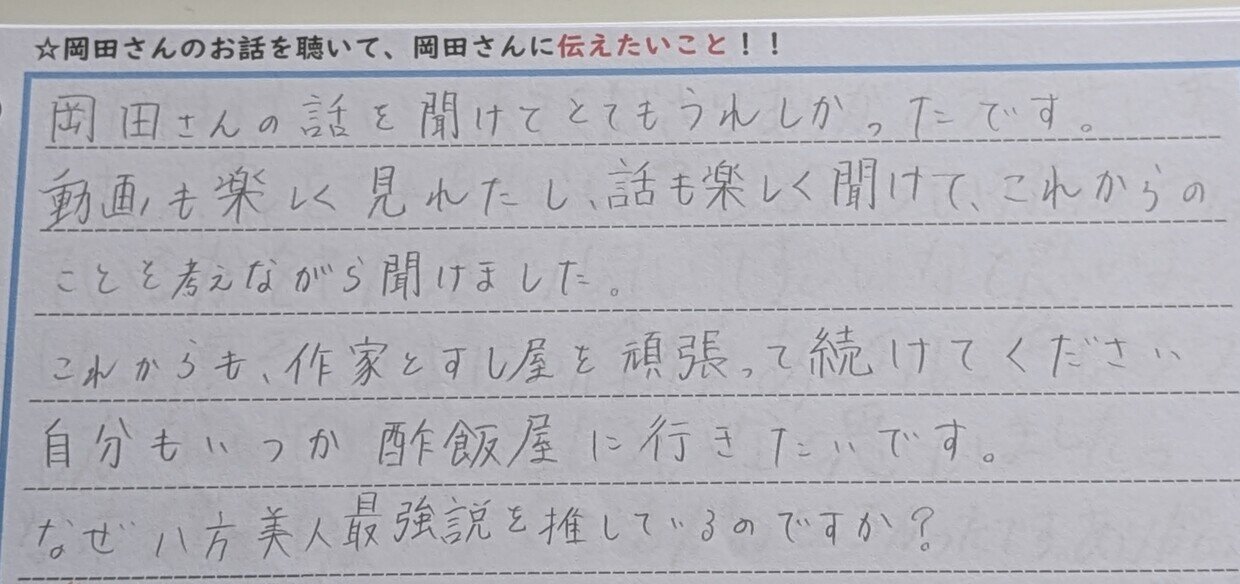 ☆岡田さんのお話を聴いて、岡田さんに伝えたいこと！！
岡田さんの話を聞けてとてもうれしかったです。
動画も楽しく見れたし、話も楽しく聞けて、これからの
ことを考えながら聞けました。
これからも、作家とすし屋を頑張って続けてください
自分もいつか酢飯屋に行きたいです。
なぜ八方美人最強説を推しているのですか？